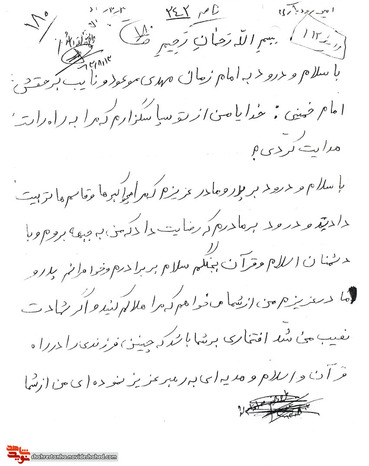 ۱۸۰
۲۴۲
۱۸۰
بسم الله رحمان رحیم
با سلام و درود به امام زمان مهدی موعود و نایب بر حقش
امام خمینی : خدایا من از تو سپاسگزارم که مرا به راه راست
هدایت کردی
با سلام و درود بر پدر و مادر عزیزم که مرا و اکبرها و قاسم ها تربیت
دادید و درود بر مادرم که رضایت داد که من به جبهه بروم و با
دشمنان اسلام و قرآن بجنگم سلام بر برادرم و خواهرانم پدر و
مادر عزیزم من از شما می خواهم که مرا حلال کنید و اگر شهادت
نصیب من شد افتخاری بر شما باشد که چنین فرزندی را در راه
قرآن و اسلام و هدیه ای به رهبر عزیز نموده ای من از شما
نوید شاهد
shohratonha.navideshahed.com